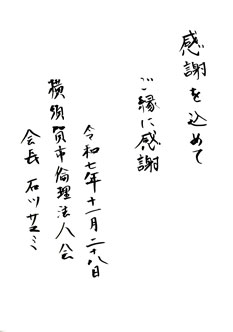 感謝を込めて
ご縁に感謝
令和七年十一月二十八日
横須賀市倫理法人会
会長 石川サユミ